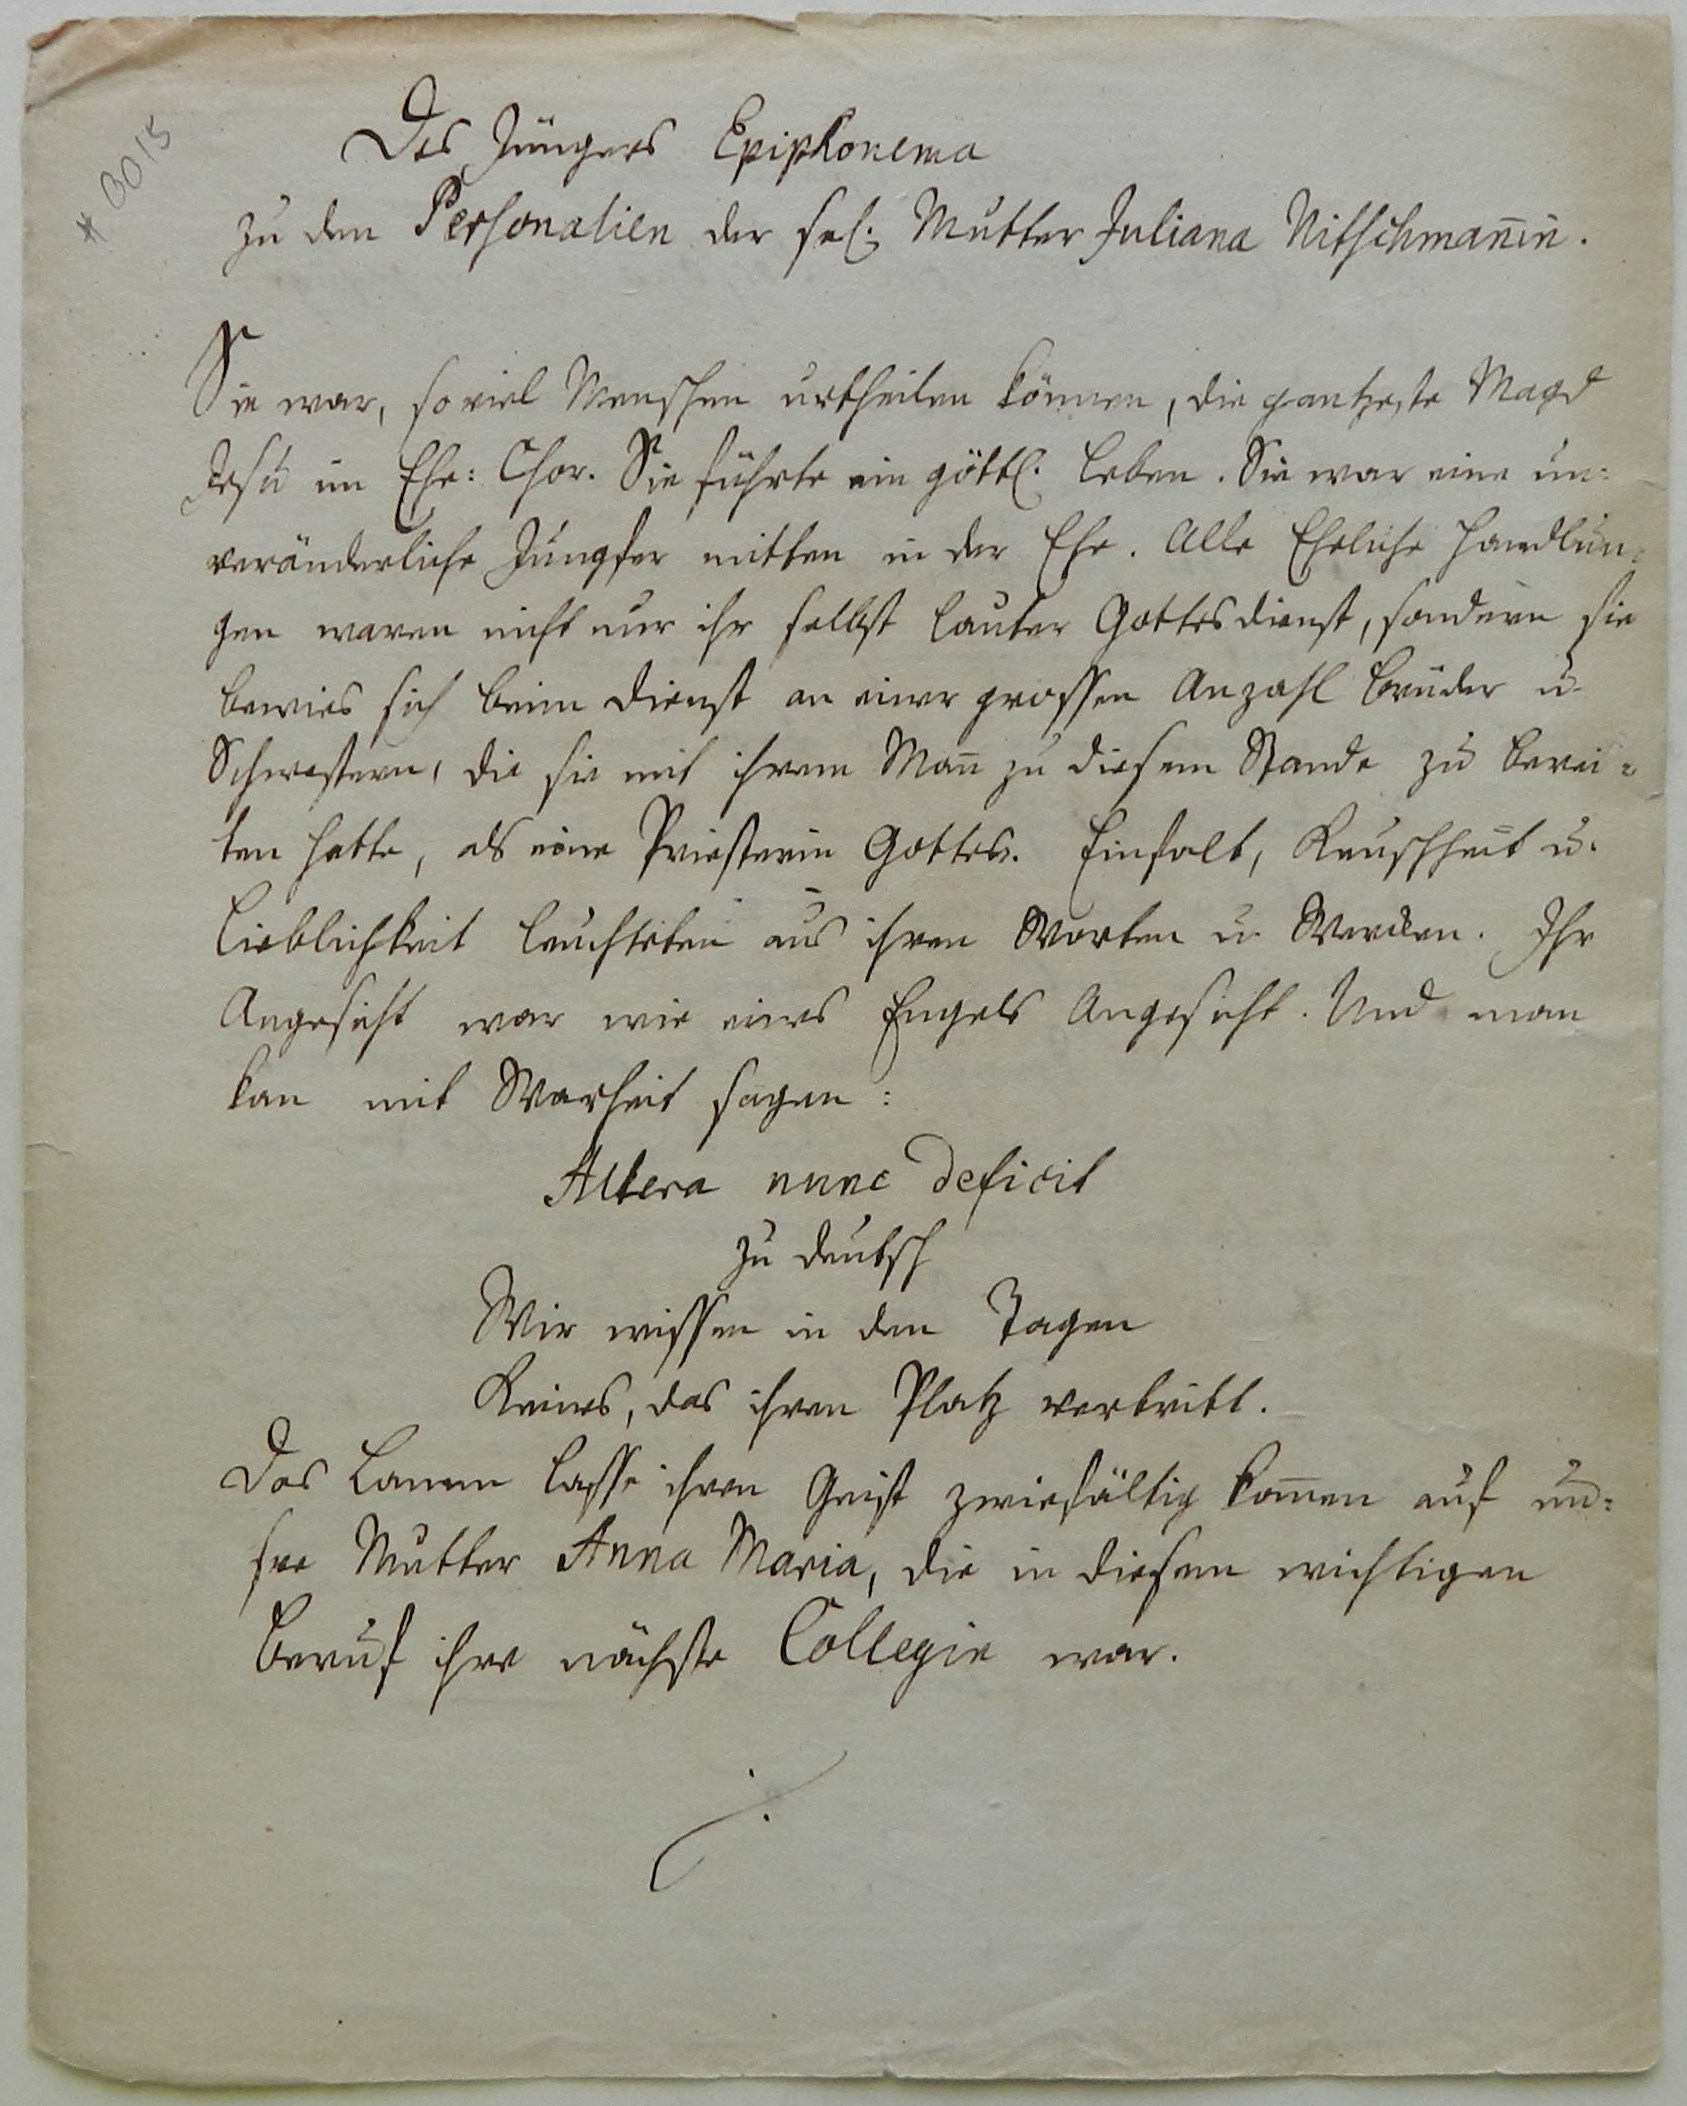 # 0015
Des Jüngers Epiphonema
zu den Personalien der sel. Mutter Juliana Nitschmañin.
Sie war, so viel Menschen urtheilen können, die gantzeste Magd
Jesu im Ehe: Chor. Sie führte ein göttl. Leben. Sie war eine un=
veränderliche Jungfer mitten in der Ehe. Alle Eheliche Handlun=
gen waren nicht nur ihr selbst lauter Gottesdienst, sondern sie
bewies sich beim Dienst an einer grossen Anzahl Brüder u.
Schwestern, die sie mit ihrem Mañ zu diesem Stande zu berei=
ten hatte, als eine Priesterin Gottes. Einfalt, Keuschheit u.
Lieblichkeit leuchteten aus ihren Worten u. Wercken. Ihr
Angesicht war wie eines Engels Angesicht. Und man
kan mit Warheit sagen:
Altera nunc deficit
zu deutsch
Wir wissen in den Tagen
Keines, das ihren Platz vertritt.
Das Lamm lasse ihren Geist zwiefältig kom̄en auf un=
sre Mutter Anna Maria, die in diesem wichtigen
Beruf ihre nächste Collegin war.